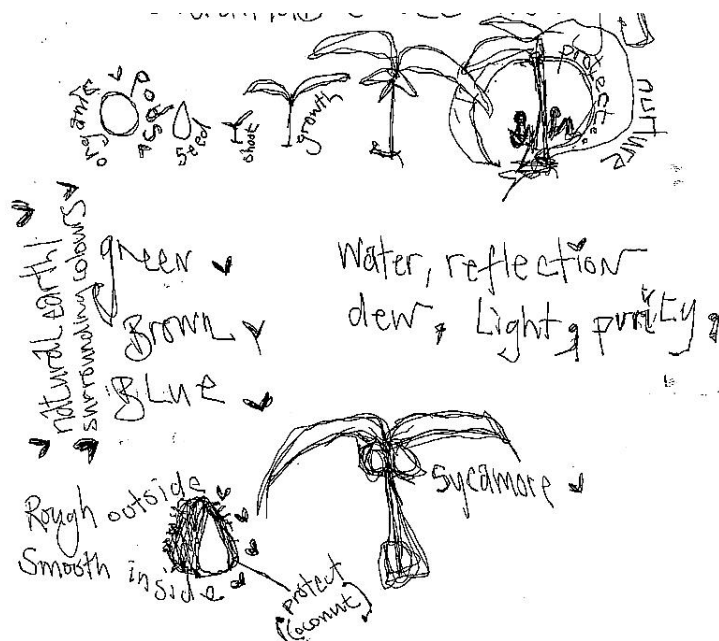 organic
pods
seed
shoot
growth
protect
nurture
natural earth/
surrounding colours
green
Brown
Blue
Water, reflection
dew, Light, purity,
Sycamore
Rough outside
Smooth inside
protect
(coconut)